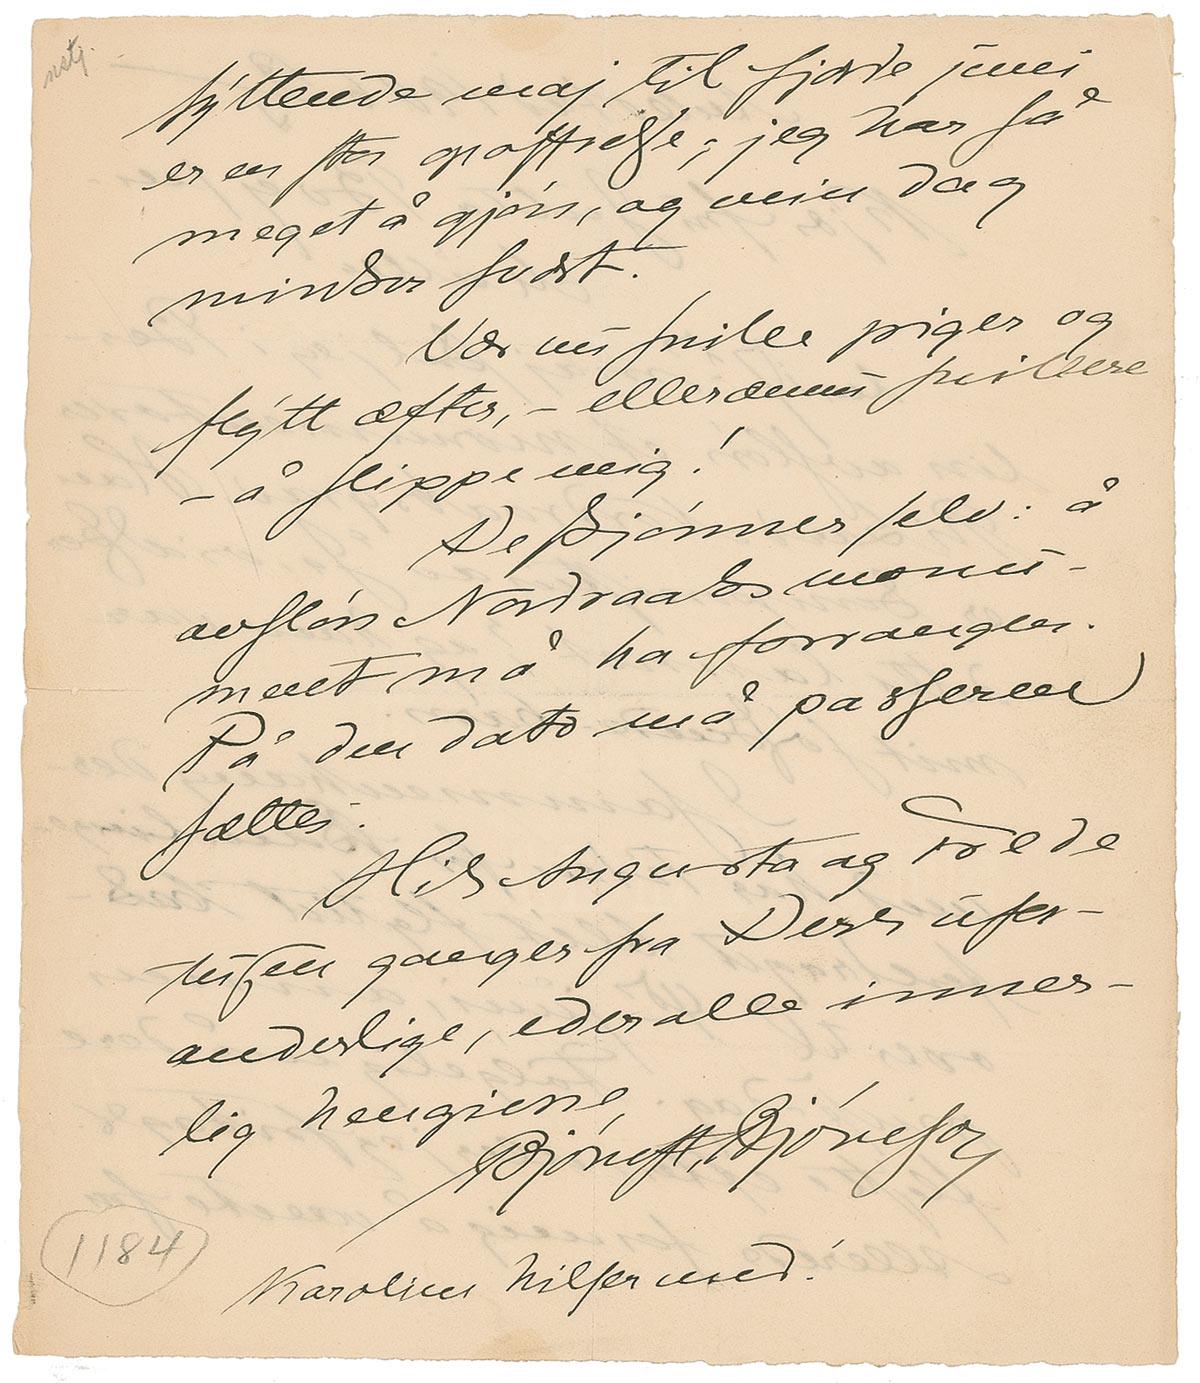 nstj.
syttende maj til fjorde juni
er en stor opoffrelse; jeg har så
meget å gjøre, og min dag
minsker svært.
Vær nu snille piger og
flytt æfter, – eller ænnu snillere
– å slippe mig!
De skjønner selv: å
avsløre Nordraaks monu-
ment må ha forrangen.
På den dato må passeren
sættes.
Hils Augusta og Frede
tusen ganger fra Deres ufor-
anderlige, eder alle inner-
lig hengivne,
Bjørnst. Bjørnson
Karoline hilser med!
1184